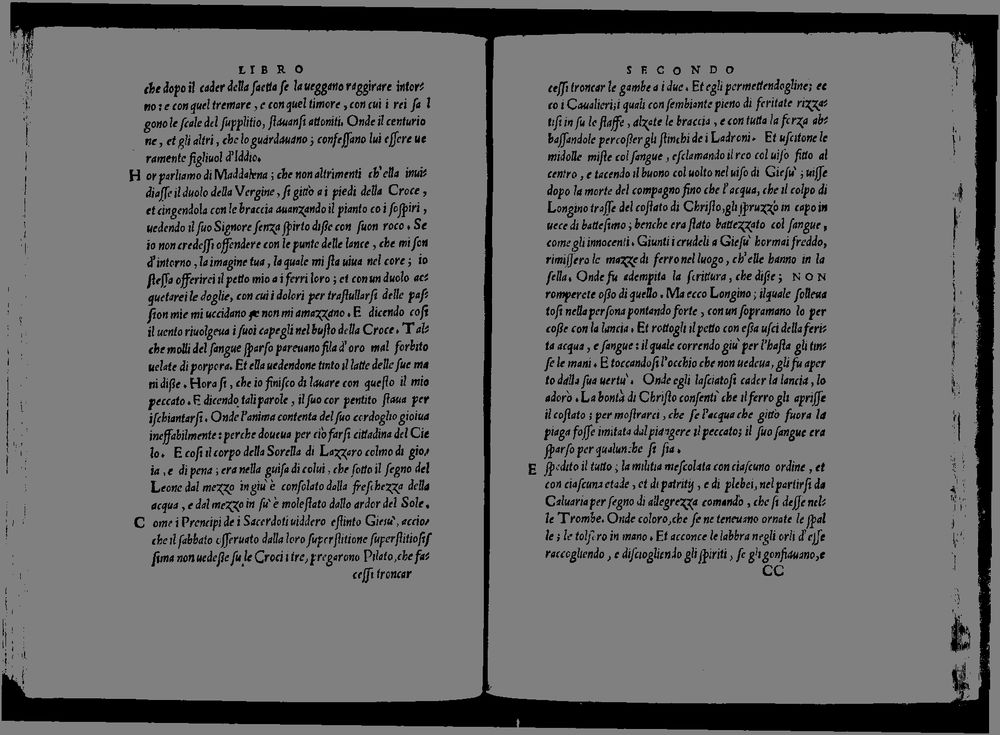 LIBRO
che dopo il cader della saetta se la ueggano raggirare intor⸗
no: e con quel tremare, e con quel timore, con cui i rei sa l
gono le scale del supplitio, stauansi attoniti. Onde il centurio
ne, et gli altri, che lo guardauano; confessano lui essere ue
ramente figliuol d'Iddio.
Hor parliamo di Maddalena; che non altrimenti ch'ella inui⸗
diasse il duolo della Vergine, si gittò a i piedi della Croce,
et cingendola con le braccia auanzando il pianto co i sospiri,
uedendo il suo Signore senza spirto disse con suon roco. Se
io non credessi offendere con le punte delle lance, che mi son
d'intorno, la imagine tua, la quale mi sta uiua nel core; io
stessa offerirei il petto mio a i ferri loro; et con un duolo ac⸗
quetarei le doglie, con cui i dolori per trastullarsi delle pas⸗
sion mie mi uccidano & non mi amazzano. E dicendo cosi
il uento riuolgeua i suoi capegli nel busto della Croce. Tal⸗
che molli del sangue sparso pareuano fila d'oro mal forbito
uelate di porpora. Et ella uedendone tinto il latte delle sue ma
ni disse. Hora si, che io finisco di lauare con questo il mio
peccato. E dicendo tali parole, il suo cor pentito staua per
ischiantarsi. Onde l'anima contenta del suo cordoglio gioiua
ineffabilmente: perche doueua per ciò farsi cittadina del Cie
lo. E cosi il corpo della Sorella di Lazzaro colmo di gio⸗
ia, e di pena; era nella guisa di colui, che sotto il segno del
Leone dal mezzo in giù è consolato dalla freschezza della
acqua, e dal mezzo in sù è molestato dallo ardor del Sole.
Come i Prencipi de i Sacerdoti uiddero estinto Giesù, accio⸗
che il sabbato osseruato dalla loro superstitione superstitiosis⸗
sima non uedesse su le Croci i tre, pregarono Pilato, che fa⸗
cessi troncar
SECONDO
cessi troncar le gambe a i due. Et egli permettendogline; ec
co i Caualieri; i quali con sembiante pieno di feritate rizza⸗
tisi in su le staffe, alzate le braccia, e con tutta la forza ab⸗
bassandole percosser gli stinchi de i Ladroni. Et uscitone le
midolle miste col sangue, esclamando il reo col uiso fitto al
centro, e tacendo il buono col uolto nel uiso di Giesù; uisse
dopo la morte del compagno fino che l'acqua, che il colpo di
Longino trasse del costato di Christo, gli spruzzò in capo in
uece di battesimo; benche era stato battezzato col sangue,
come gli innocenti. Giunti i crudeli a Giesù hormai freddo,
rimissero le mazze di ferro nel luogo, ch'elle hanno in la
sella. Onde fu adempita la scrittura, che disse; NON
romperete osso di quello. Ma ecco Longino; il quale solleua
tosi nella persona pontando forte, con un sopramano lo per
cosse con la lancia. Et rottogli il petto con essa usci della feri⸗
ta acqua, e sangue: il quale correndo giù per l'hasta gli tin⸗
se le mani. E toccandosi l'occhio che non uedeua, gli fu aper
to dalla sua uertù. Onde egli lasciatosi cader la lancia, lo
adorò. La bontà di Christo consentì che il ferro gli aprisse
il costato; per mostrarci, che se l'acqua che gittò fuora la
piaga fosse imitata dal piangere il peccato; il suo sangue era
sparso per qualunche si sia.
Espedito il tutto; la militia mescolata con ciascuno ordine, et
con ciascuna etade, et di patrity, e di plebei, nel partirsi da
Caluaria per segno di allegrezza comandò, che si desse nel⸗
le Trombe. Onde coloro, che se ne teneuano ornate le spal
le; le tolsero in mano. Et acconce le labbra negli orli d'esse
raccogliendo, e disciogliendo gli spiriti, se gli gonfiauano, e
CC